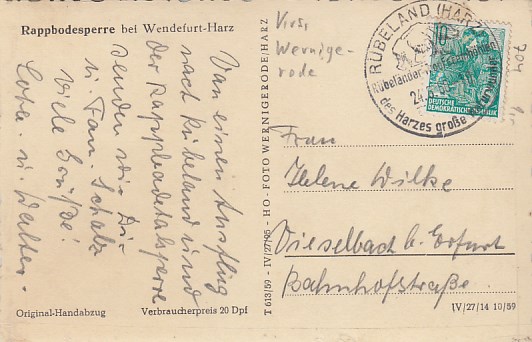 Rappbodesperre bei Wendefurt-Harz
Von einem Ausflug
nach Rübeland und
der Rappbodetalsperre
senden wir Dir
u. Fam. Scholz
viele Grüße!
u. Walter
Original-Handabzug
Verbraucherpreis 20 Dpf
T 613/59 - IV/27/95 - HO - FOTO WERNIGERODE/HARZ
Wernige-
rode
RÜBELAND (HARZ)
Rübeländer
des Harzes große
10
DEUTSCHE
DEMOKRATISCHE REPUBLIK
Frau
Helene Wilke
Vieselbach b. Erfurt
Bahnhofstraße.
IV/27/14 10/59